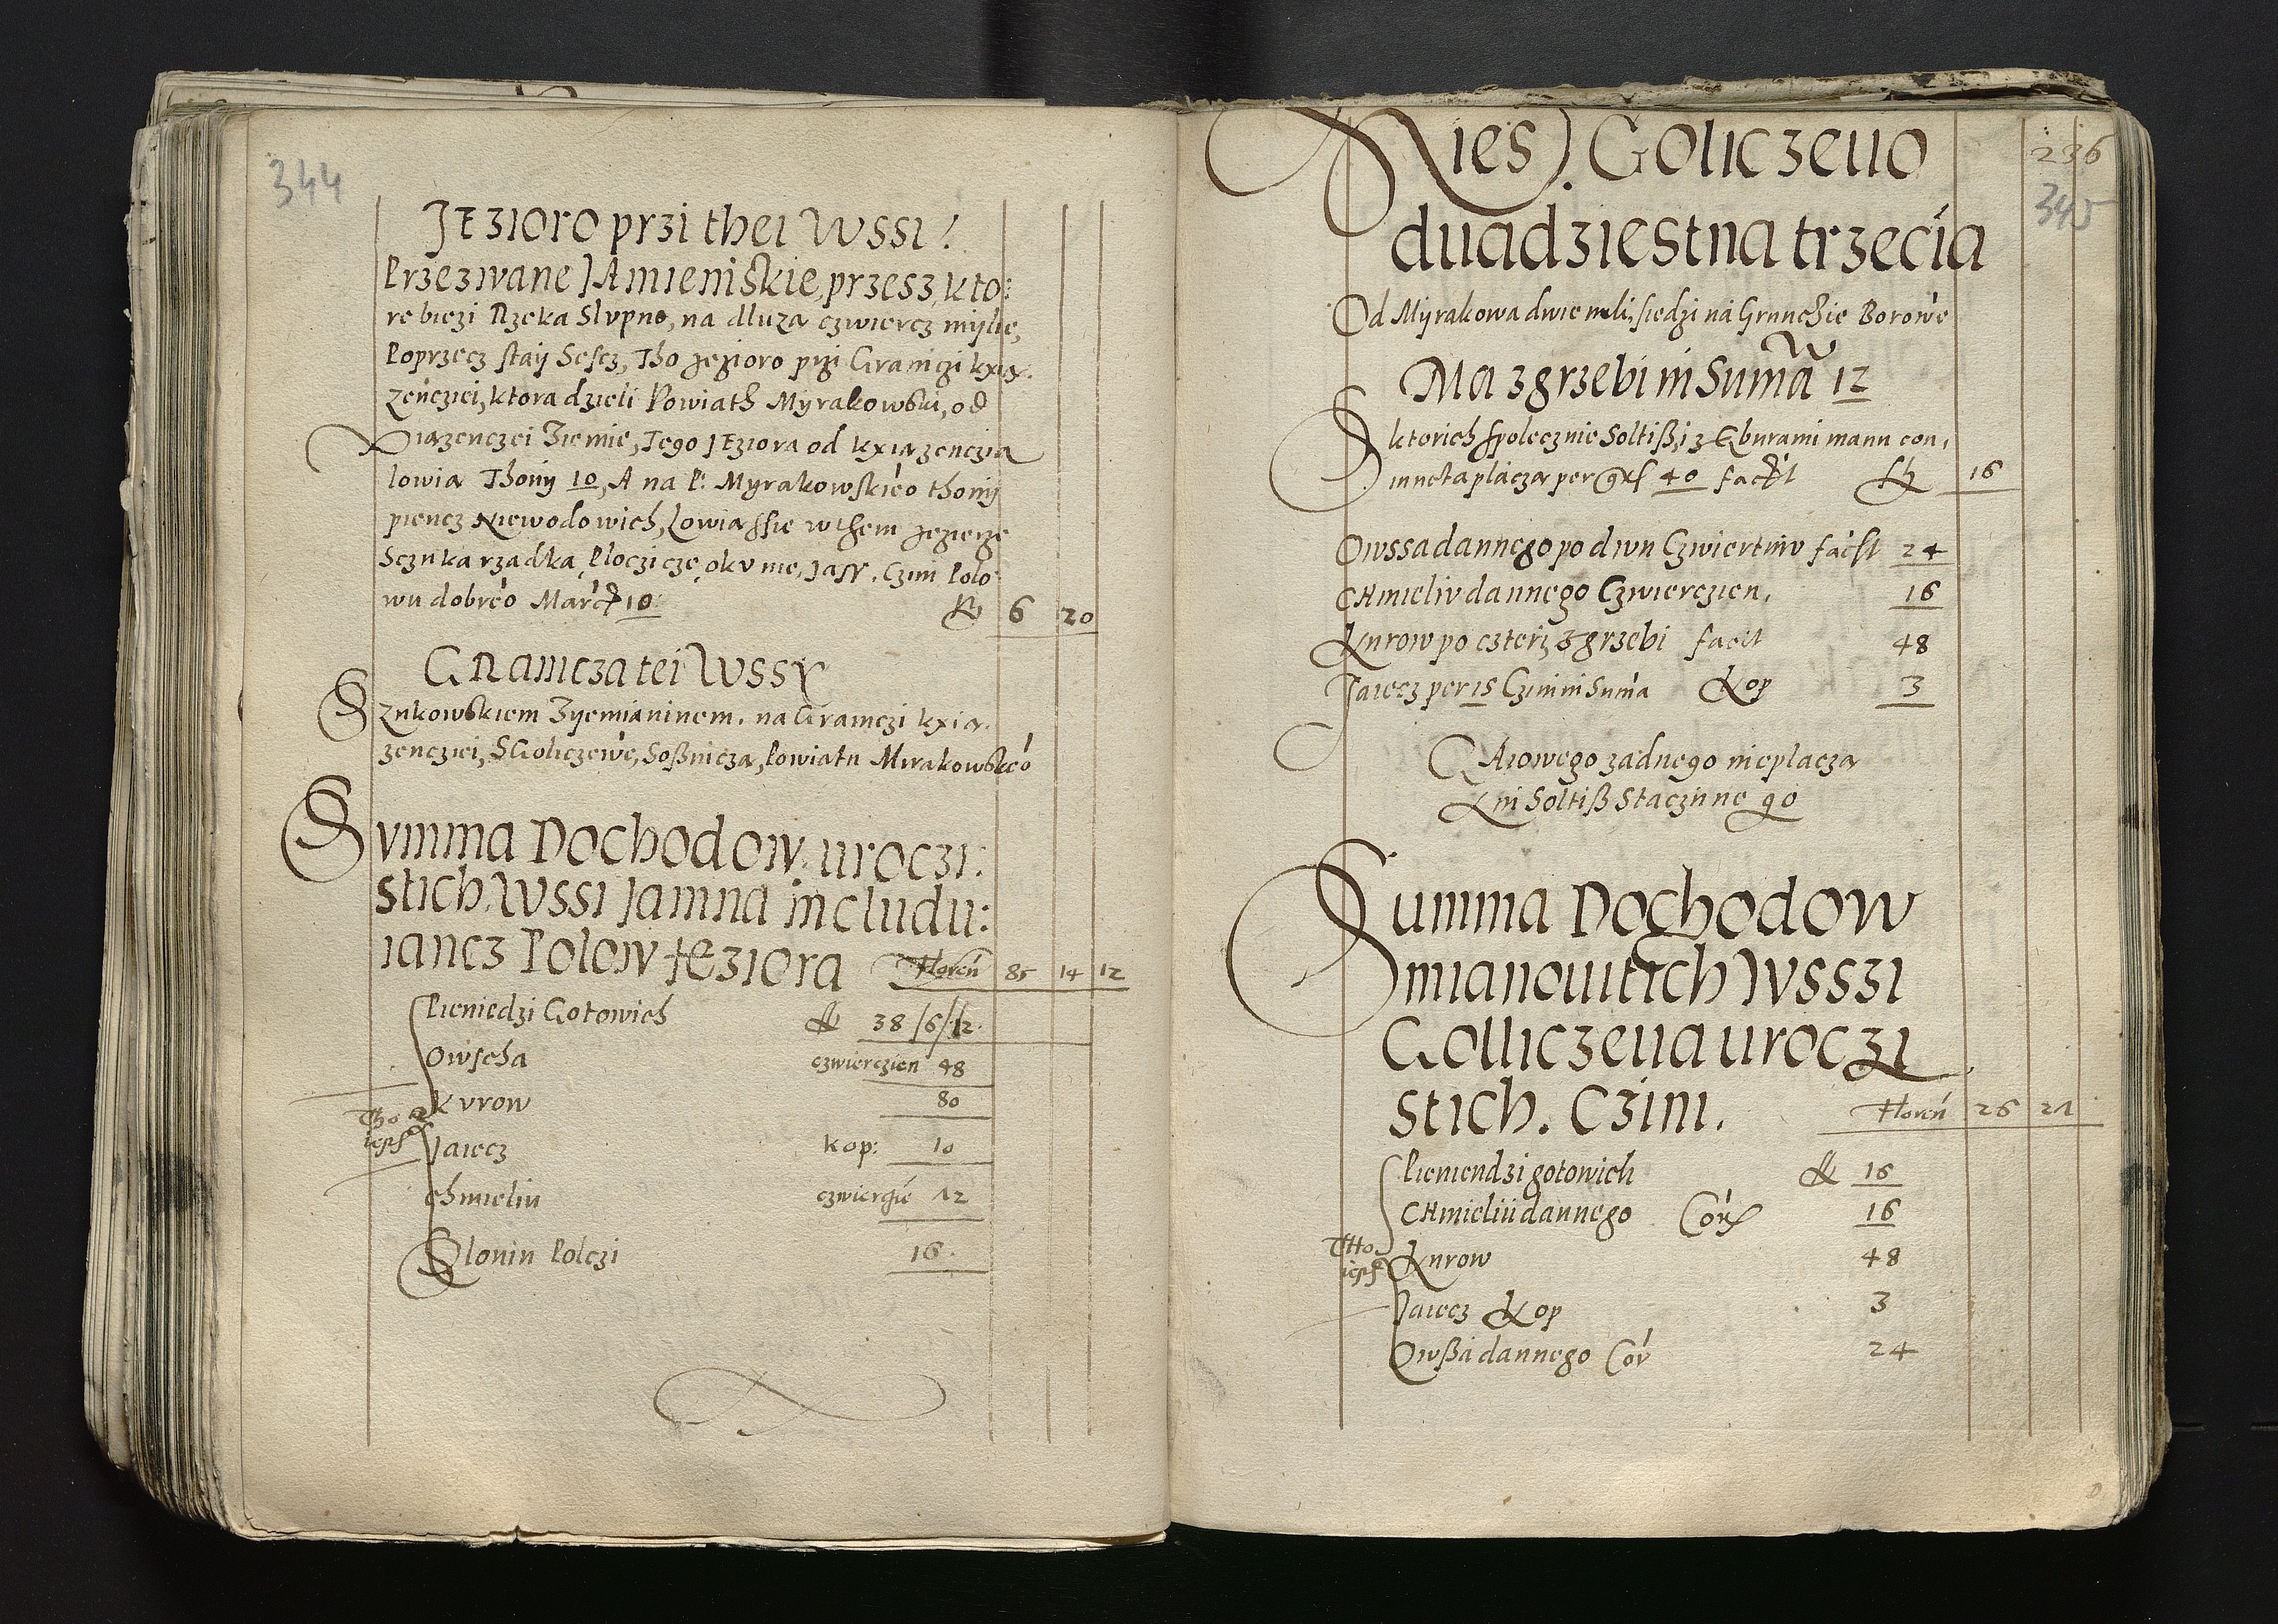 344
JEzioro przi thei Wssi!
Przezwane JAmieniskie, przesz, kto:
re biezi Rzeka Slvpno, na dluza czwiercz mylie,
Poprzecz staij Sescz, Tho jezioro przi Graniczi kxią.
żenczei, ktora dzieli Powiath Myrakowski, od
Xiazenczei Ziemie, Tego JEziora od kxiązenczia
lowia Thonij 10, A na P. Myrakowskieo thonij
piencz Niewodowich, Lowia ssie w them jezierze
Scznka rzadka, Ploczicze, okvnie, Jassy. Czini Polo
wu dobreo Marck 10:
6 20
GRanicza tei Wssy
S Znkowskiem Zyemianinem. na Graniczi kxia.
zenczei, SGoliczewe, Soßnicza, Powiatu Mirakowskeo
Svmma Dochodow. uroczi:
stich. Wssi Jamna includu:
iancz Polow Jeziora Floren 85 14 12
Pieniedzi Gotowich 38/6/12.
Owscha czwierczien 48
kvrow 80
Tho iest
Jaiecz kop: 10
chmieliu czwierczie 12
Slonin Polczi 16.
236
345
Wies). Goliczeuo
duadziestna trzecia
Od Myrakowa dwie mili, siedzi ná Grunchie Borowe
Ma zgrzebi in Suma 12
S ktorich spolecznie Soltiß, i z Gburami manu con,
iuncta placza per 40 facit 16
Owssa dannego po dwu Czwiertniv facit 24
CHmieliv dannego Czwierczien, 16
Kurow po czteri, z grzebi facit 48
Jaiecz per 15 Czini in Suma Kop 3
GAiowego zadnego nie placza
Ani Soltiß Staczinne go
Summa Dochodow
mianouitich Wsszi
Golliczeua uroczi
stich. Czini. Floren 26 21
Pieniendzi gotowich 16
CHmieliu dannego Cor 16
THo iest
Kurow 48
Jaiecz Kop 3
Owßá dannego Cor 24